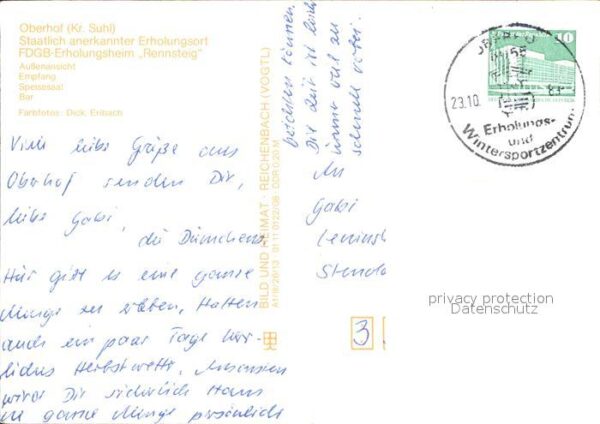 Oberhof (Kr. Suhl)
Staatlich anerkannter Erholungsort
FDGB-Erholungsheim „Rennsteig"
Außenansicht
Empfang
Speisesaal
Bar
Farbfotos: Dick, Erlbach
Viele liebe Grüße aus
Oberhof senden Dir,
liebe Gabi,
die
Hier gibt es eine ganze
Menge zu erleben, Hatten
auch ein paar Tage herr-
liches Herbstwetter. Ansonsten
wird Dir sicherlich Hans
ne ganze Menge persönlich
berichten können.
Die Zeit ist leider
immer viel zu
schnell vorbei.
BILD UND HEIMAT · REICHENBACH (VOGTL)
A1/III/26/13 01 11 0122/08 DDR 0,20 M
An
Gabi
Leninst
Stenda
3
10
23.10.
Erholungs-
und
Wintersportzentrum
privacy protection
Datenschutz